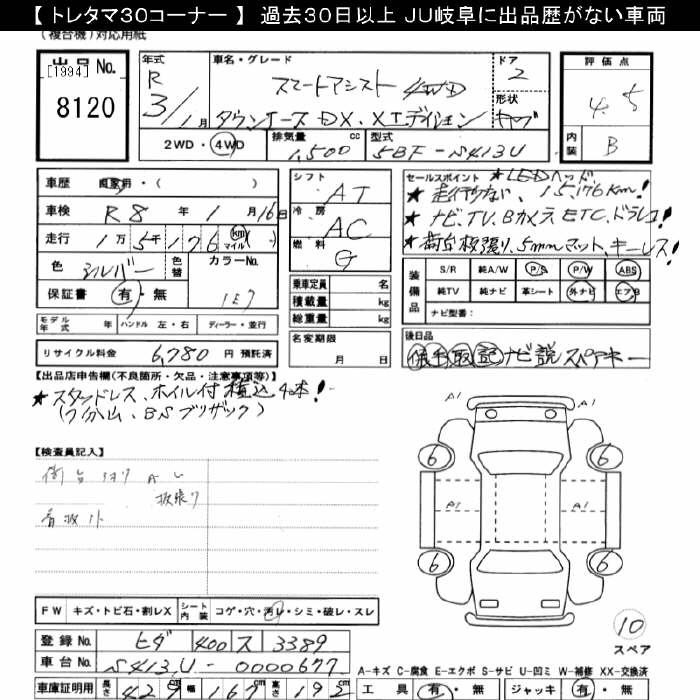 【 トレタマ30コーナー 】 過去30日以上 JU岐阜に出品歴がない車両
（複合機）対応用紙
出品No. [1994] 8120
年式 R 3/1月
車名・グレード スマートアシスト 4WD
タウンエース DX、Xエディション
ドア 2
形状 キャブ
評価点 4.5
内装 B
2WD・4WD 排気量 1,500 cc 型式 5BF-S413U
車歴 自家用・（ ）
車検 R8年 1月 16日
走行 1万5千176 km マイル ( )
色 シルバー 色替 カラーNo. 1E7
保証書 有・無
シフト AT
冷房 AC
燃料 G
乗車定員 名
積載量 kg
総重量 kg
名変期限 月 日
セールスポイント ★LEDヘッド
★走行少ない、15,176km!
★ナビ、TV、Bカメラ、ETC、ドラレコ!
★荷台板張り、5mmマット、キーレス!
装備品 S/R 純A/W P/S P/W ABS
純TV 純ナビ 革シート 外ナビ エアB
ナビ型番：
モデル年式 年 ハンドル 左・右 ディーラー・並行
リサイクル料金 6,780 円 預託済
後日品
保 記 ナビ説 スペアキー
【出品店申告欄(不良箇所・欠品・注意事項等)】
★スタッドレス、ホイル付 積込 4本!
(7分山、BSブリザック)
【検査員記入】
荷台 板張り
看板
A1 A1
6 6
A1 A1
6 6
10
スペア
FW キズ・トビ石・割レX シート内装 コゲ・穴・汚レ・シミ・破レ・スレ
登録No. ヒダ 400 ス 3389
車台No. S413U-0000677
A-キズ C-腐食 E-エクボ S-サビ U-凹ミ W-補修 XX-交換済
車庫証明用 長さ 429 幅 167cm 高さ 192 工具 有・無 ジャッキ 有・無